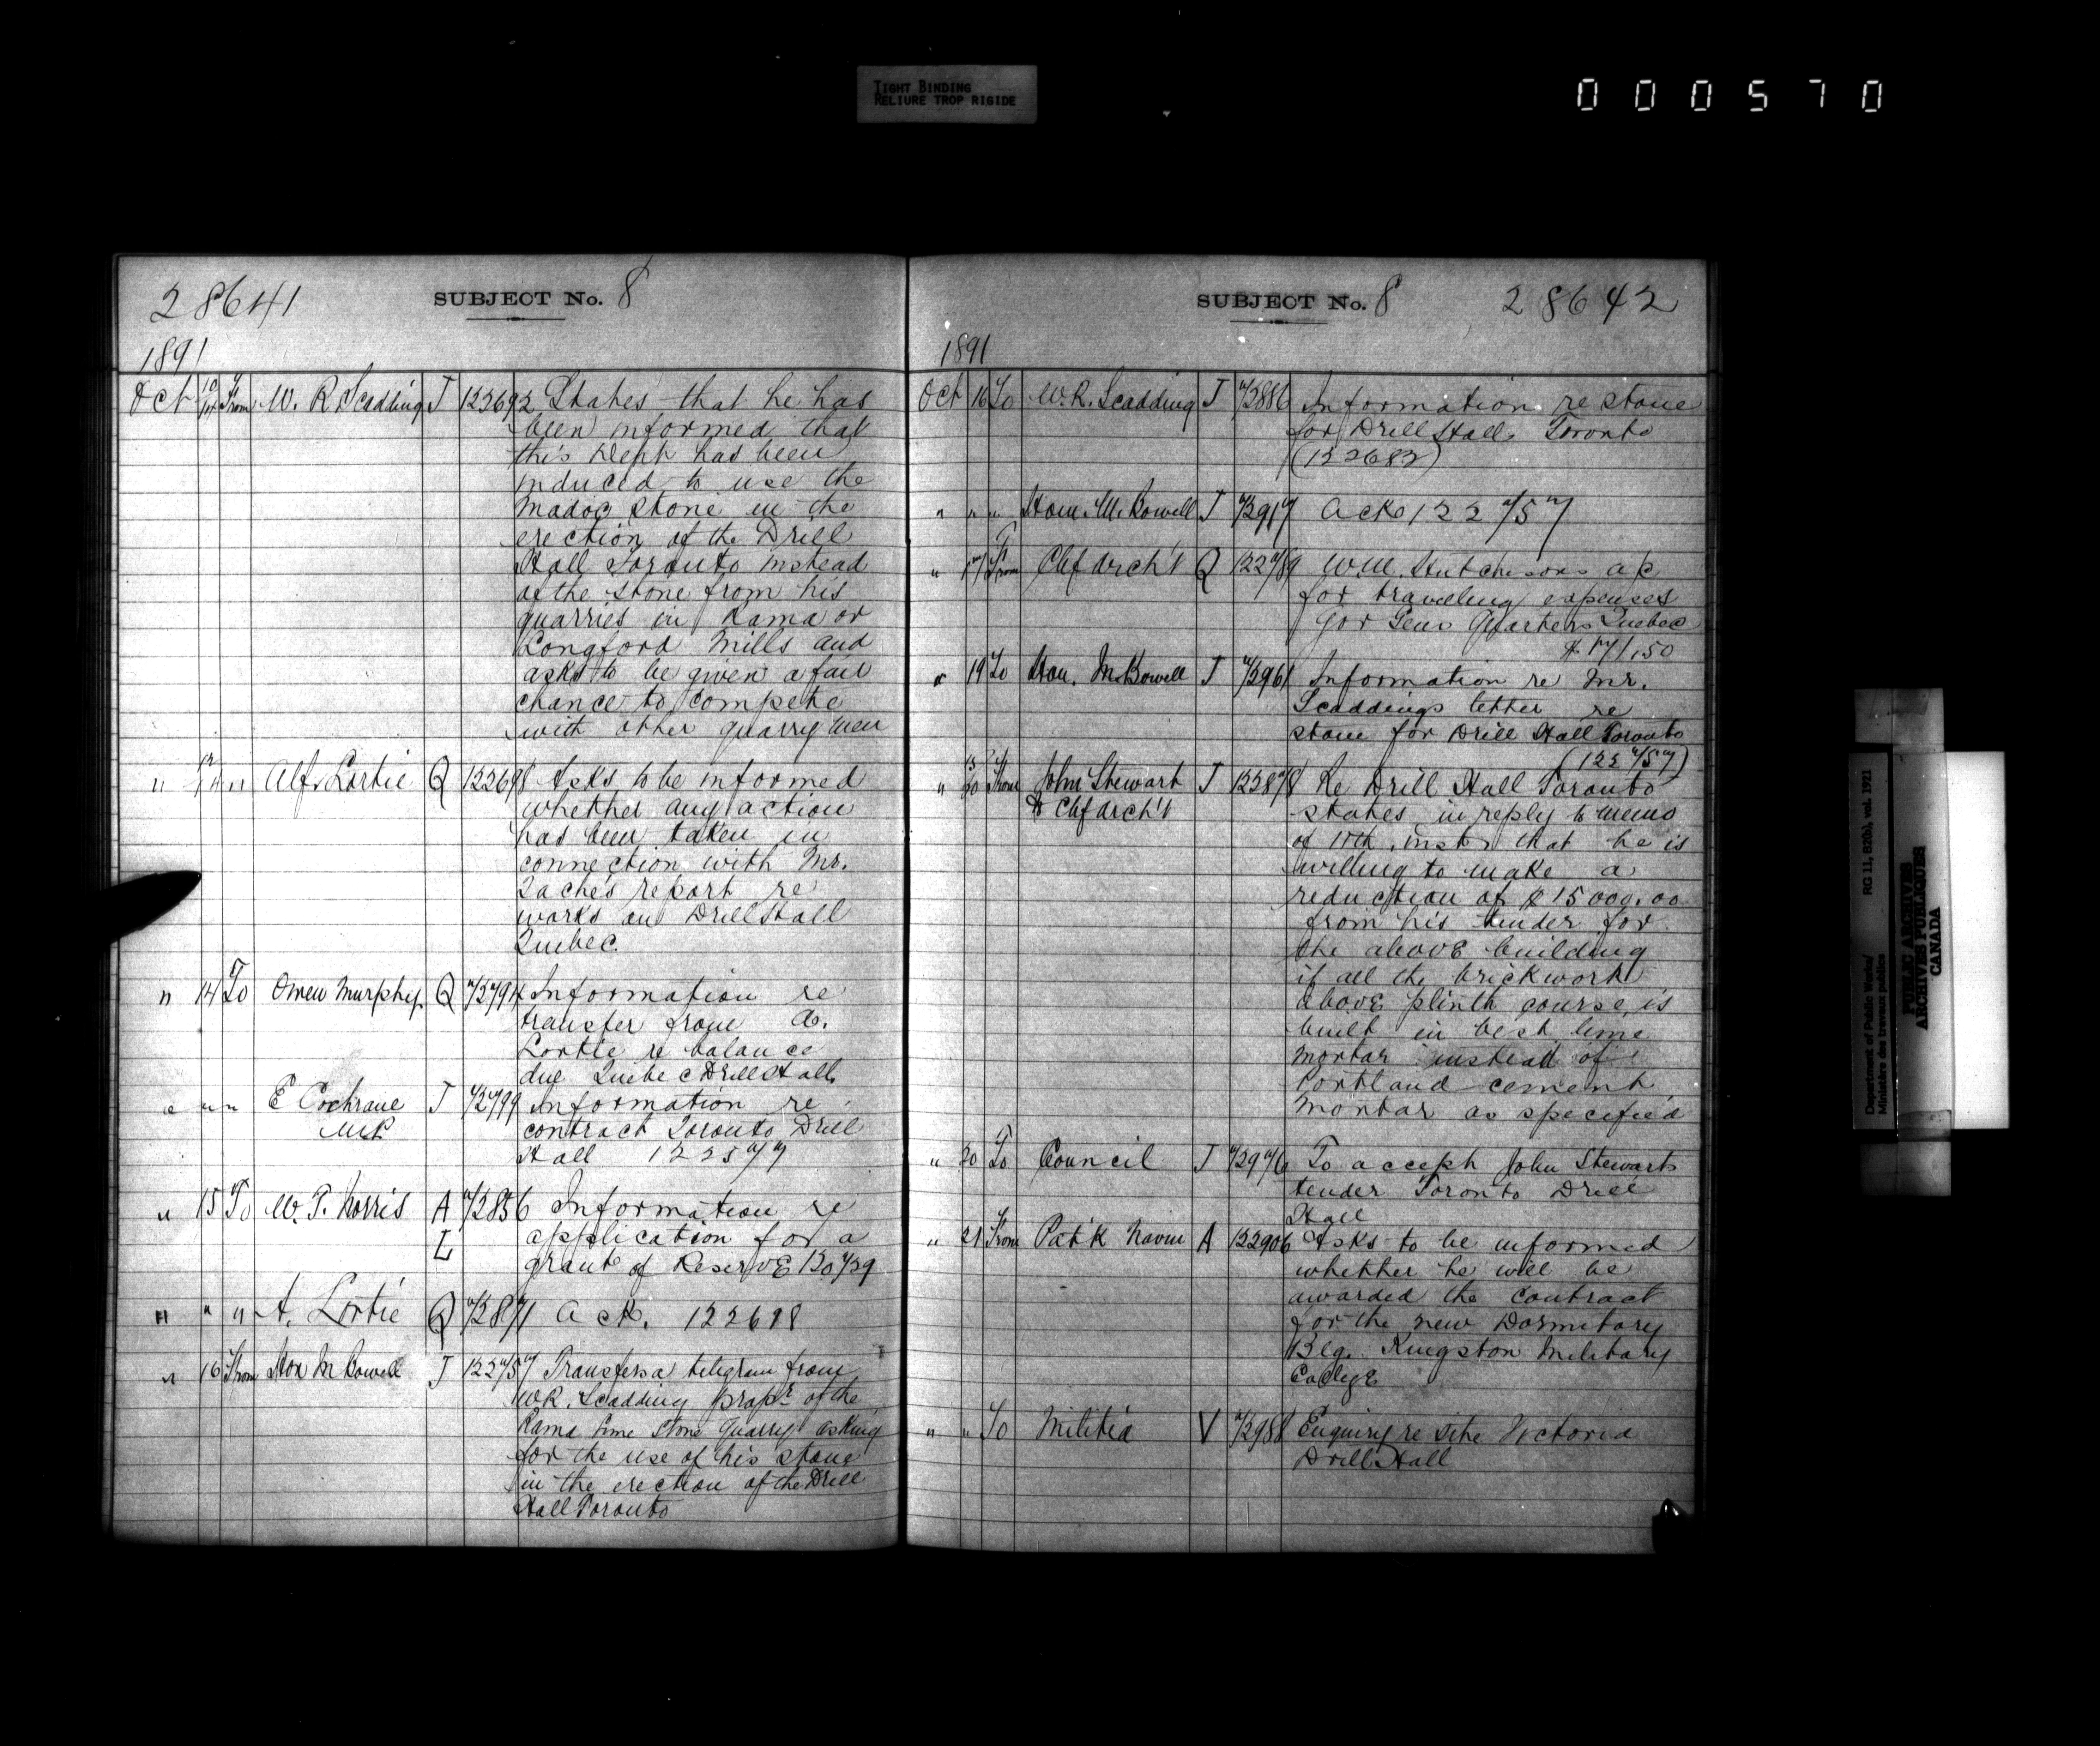 TIGHT BINDING
RELIURE TROP RIGIDE
000570
28641 SUBJECT No. 8
1891
Oct 10/14 From W. R. Scadding T 122692 States that he has
been informed that
this Dept has been
induced to use the
Madoc stone in the
erection of the Drill
Hall Toronto instead
of the stone from his
quarries in Rama or
Longford Mills and
asks to be given a fair
chance to compete
with other quarrymen
" 14 " Alf. Lortie Q 122698 Asks to be informed
whether any action
has been taken in
connection with Mr.
report re
works on Drill Hall
Quebec.
" 14 To Owen Murphy Q Information re
transfer from A.
Lortie re balance
due Quebec Drill Hall
" " " E Cochrane T Information re
MP contract Toronto Drill
Hall
" 15 To W. P. Norris A Information re
L application for a
grant of Reserve
" " " A. Lortie Q Ack. 122698
" 16 From Hon M Bowell T Transfers a telegram from
W R. Scadding propr of the
Rama lime stone Quarry asking
for the use of his stone
in the erection of the Drill
Hall Toronto
SUBJECT No. 8 28642
1891
Oct 16 To W. R. Scadding T Information re stone
for Drill Hall Toronto
(122682)
" " " Hon. M. Bowell T Ack
" 17 From Chf Arch't Q W. M. Hutchisons a/c
for traveling expenses
Gov Gens Quarters Quebec
$ 171.50
" 19 To Hon. M. Bowell T Information re Mr.
Scaddings letter re
stone for Drill Hall Toronto
" 20 From John Stewart T Re Drill Hall Toronto
to Chf Arch't states in reply to memo
of 11th inst that he is
willing to make a
reduction of $15000.00
from his tender for
the above building
if all the brickwork
above plinth course is
built in best lime
mortar instead of
Portland cement
mortar as specified
" 20 To Council T To accept John Stewarts
tender Toronto Drill
Hall
" 21 From Pat'k Navin A 122906 Asks to be informed
whether he will be
awarded the contract
for the new Dormitory
Blg. Kingston Military
College
" " To Militia V Enquiry re site Victoria
Drill Hall
Department of Public Works/ RG 11, B2(b), vol. 1921
Ministère des travaux publics
PUBLIC ARCHIVES
ARCHIVES PUBLIQUES
CANADA